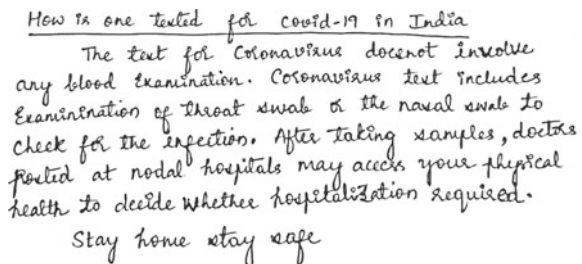 How is one tested for covid-19 in India
The test for Coronavirus doesnot involve
any blood Examination. Coronavirus test includes
Examinination of throat swab or the nasal swab to
check for the infection. After taking samples, doctors
posted at nodal hospitals may access your physical
health to decide whether hospitalization required.
Stay home stay safe